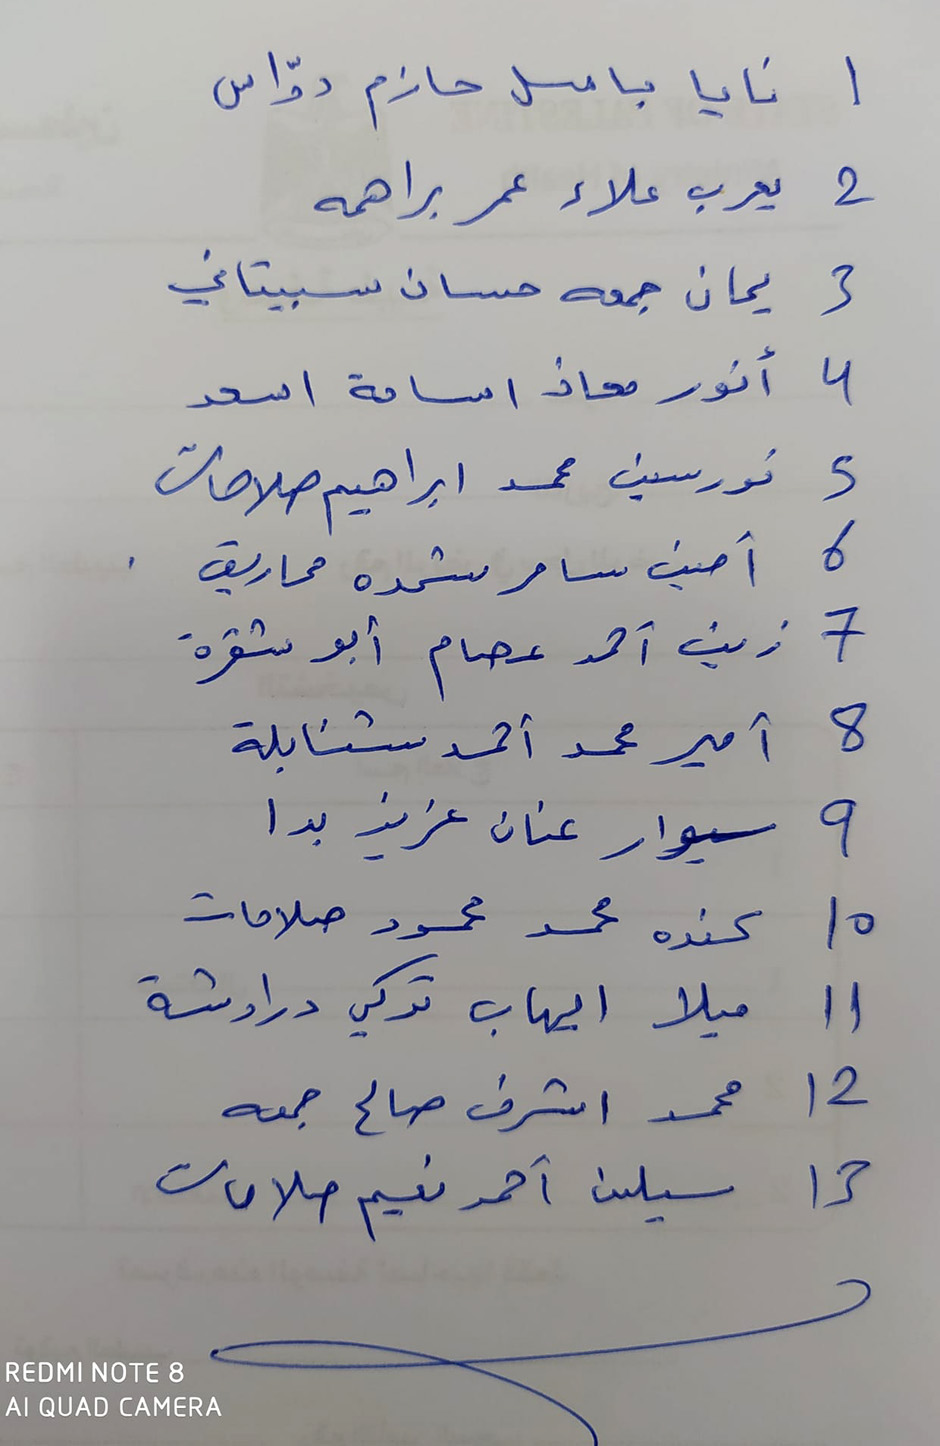 1 نايا باسل حازم دوّاس
2 يعرب علاء عمر براهمه
3 يمان جمعه حسان سبيتاني
4 أنور معاذ اسامة اسعد
5 نورسين محمد ابراهيم صلاحات
6 أمين سامر شحده محاريق
7 زين أحمد عصام أبو شقرة
8 أمير محمد أحمد شنابلة
9 سيوار عنان عزيز بدا
10 كنده محمد محمود صلاحات
11 ميلا ايهاب تركي دراوشة
12 محمد اشرف صالح جمعه
13 سيلين أحمد نعيم صلاحات
REDMI NOTE 8
AI QUAD CAMERA